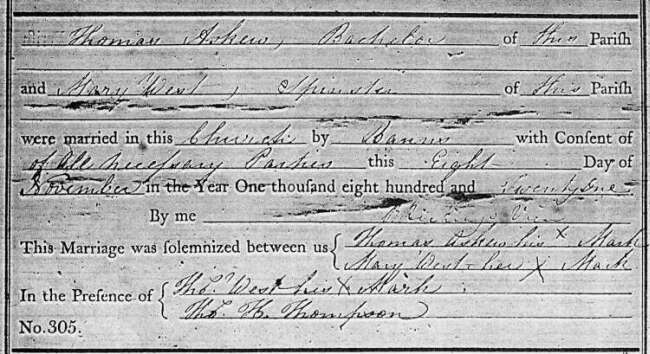 Thomas Askew, Bachelor of this Parish
and Mary West, Spinster of this Parish
were married in this Church by Banns with Consent of
of All necessary Parties this Eight Day of
November in the Year One thousand eight hundred and twenty one
By me
This Marriage was solemnized between us { Thomas Askew his X Mark
Mary West her X Mark
In the Presence of { Thos. West his X Mark
Thos. H. Thompson
No. 305.